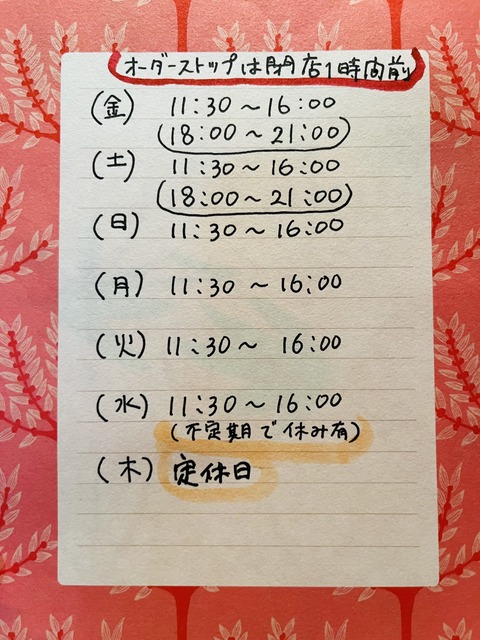 オーダーストップは閉店1時間前
(金) 11:30〜16:00
18:00〜21:00
(土) 11:30〜16:00
18:00〜21:00
(日) 11:30〜16:00
(月) 11:30〜16:00
(火) 11:30〜16:00
(水) 11:30〜16:00
(不定期で休み有)
(木) 定休日